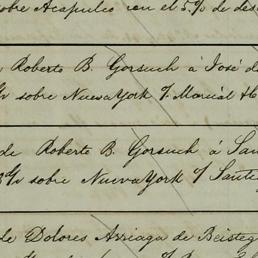 sobre Acapulco con el 5% de des
Roberto B. Gorsuch á José d
sobre Nueva York
de Roberto B. Gorsuch á San
sobre Nueva York
de Dolores Arriaga de Beisteg